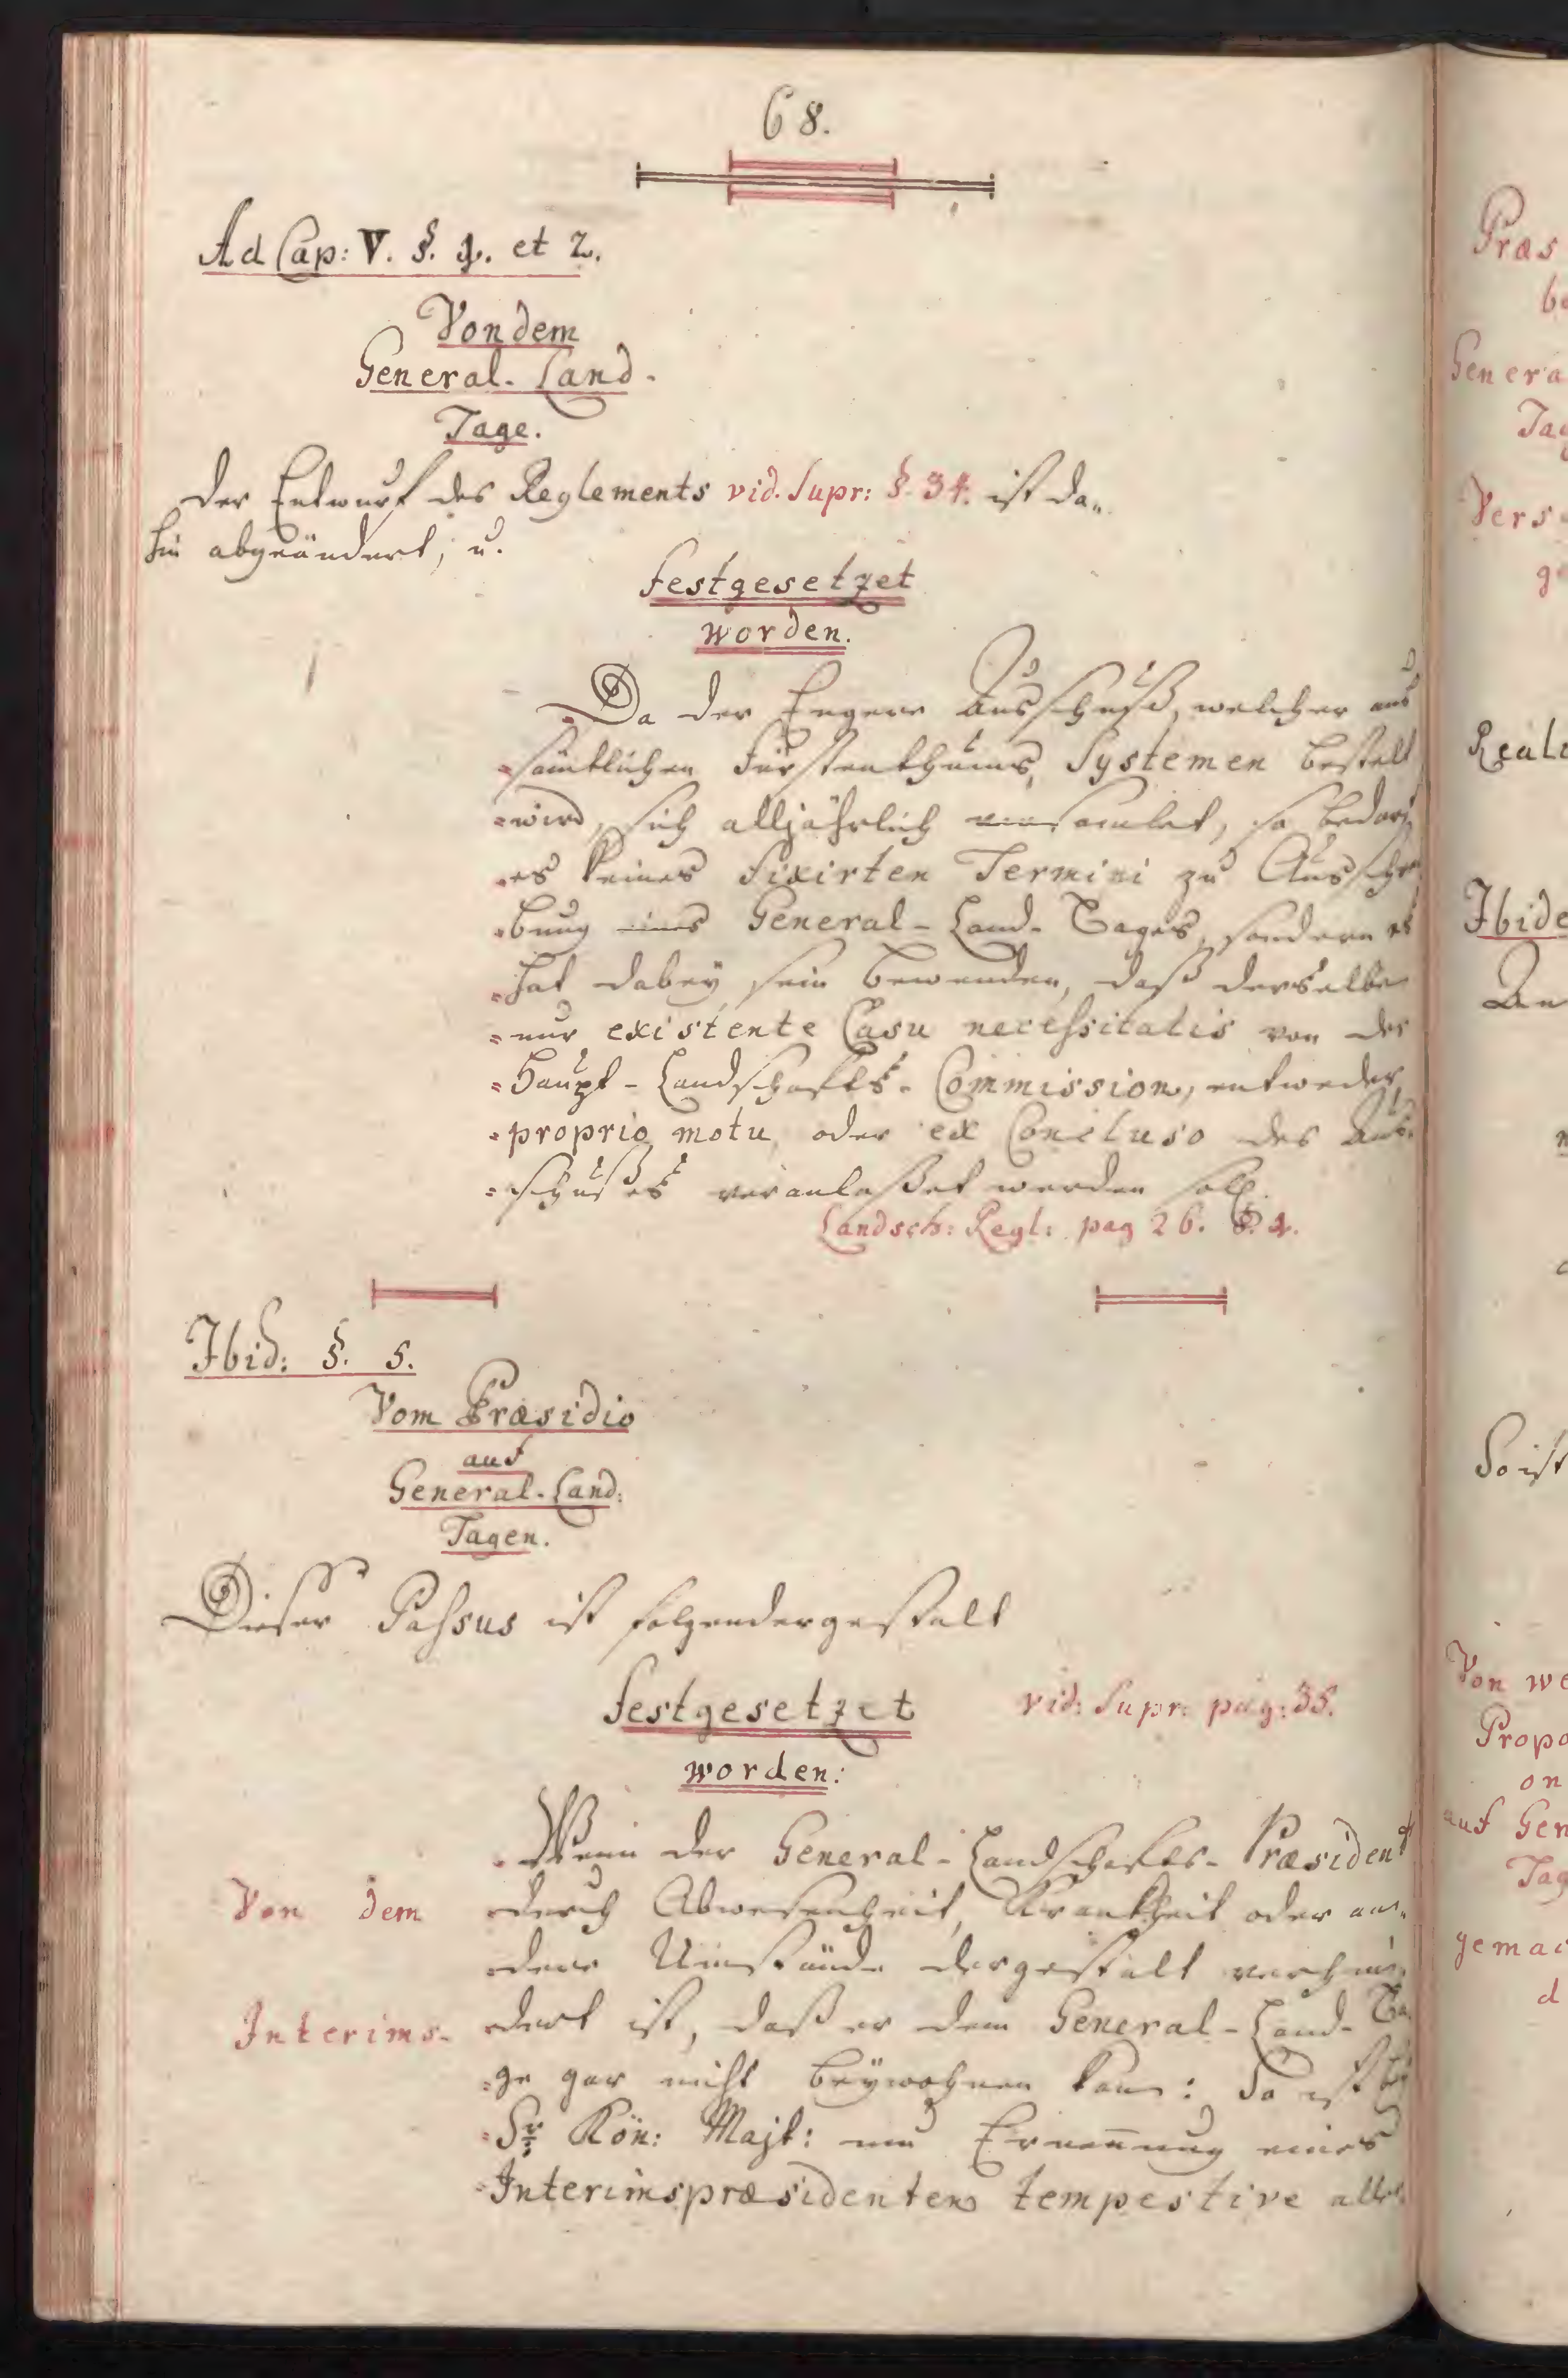 68.
Ad Cap: V. §. 1. et 2.
Von dem
General-Land-
Tage.
Der Entwurf des Reglements vid. Supr: §. 34. ist da„
hin abgeändert, u.
festgesetzet
worden.
Da der Engere Ausschuß, welcher aus
sämtlichen Fürstenthums, Systemen bestelt
wird, sich alljährlich versamlet, so bedarf
es keines fixirten Termini zu Ausschrei
bung eines General-Land-Tages, sondern es
hat dabey sein bewenden, daß derselbe
nur existente Casu necessitatis von der
Haupt-Landschafts-Commission, entweder
proprio motu, oder ex Concluso des Aus-
schußes veranlaßet werden soll.
Landsch: Regl: pag 26. §. 1.
Ibid: §. 5.
Vom Præsidio
auf
General-Land:
Tagen.
Dieser Passus ist folgendergestalt
festgesetzet vid: Supr: pag: 35.
worden:
Wenn der General-Landschafts-Præsident
Von dem durch Abwesenheit, Krankheit oder an„
dere Umstände dergestalt verhin
Interims- dert ist, daß er dem General-Land-Ta
ge gar nicht beywohnen kann: So ist bey
Sr Kön: Majt: um Ernennung eines
Interimspræsidenten tempestive aller
Præs
Genera
Vers
Reali
Ibide
An
So ist
Von we
Propo
on
auf Gen
Tag
gemac
d